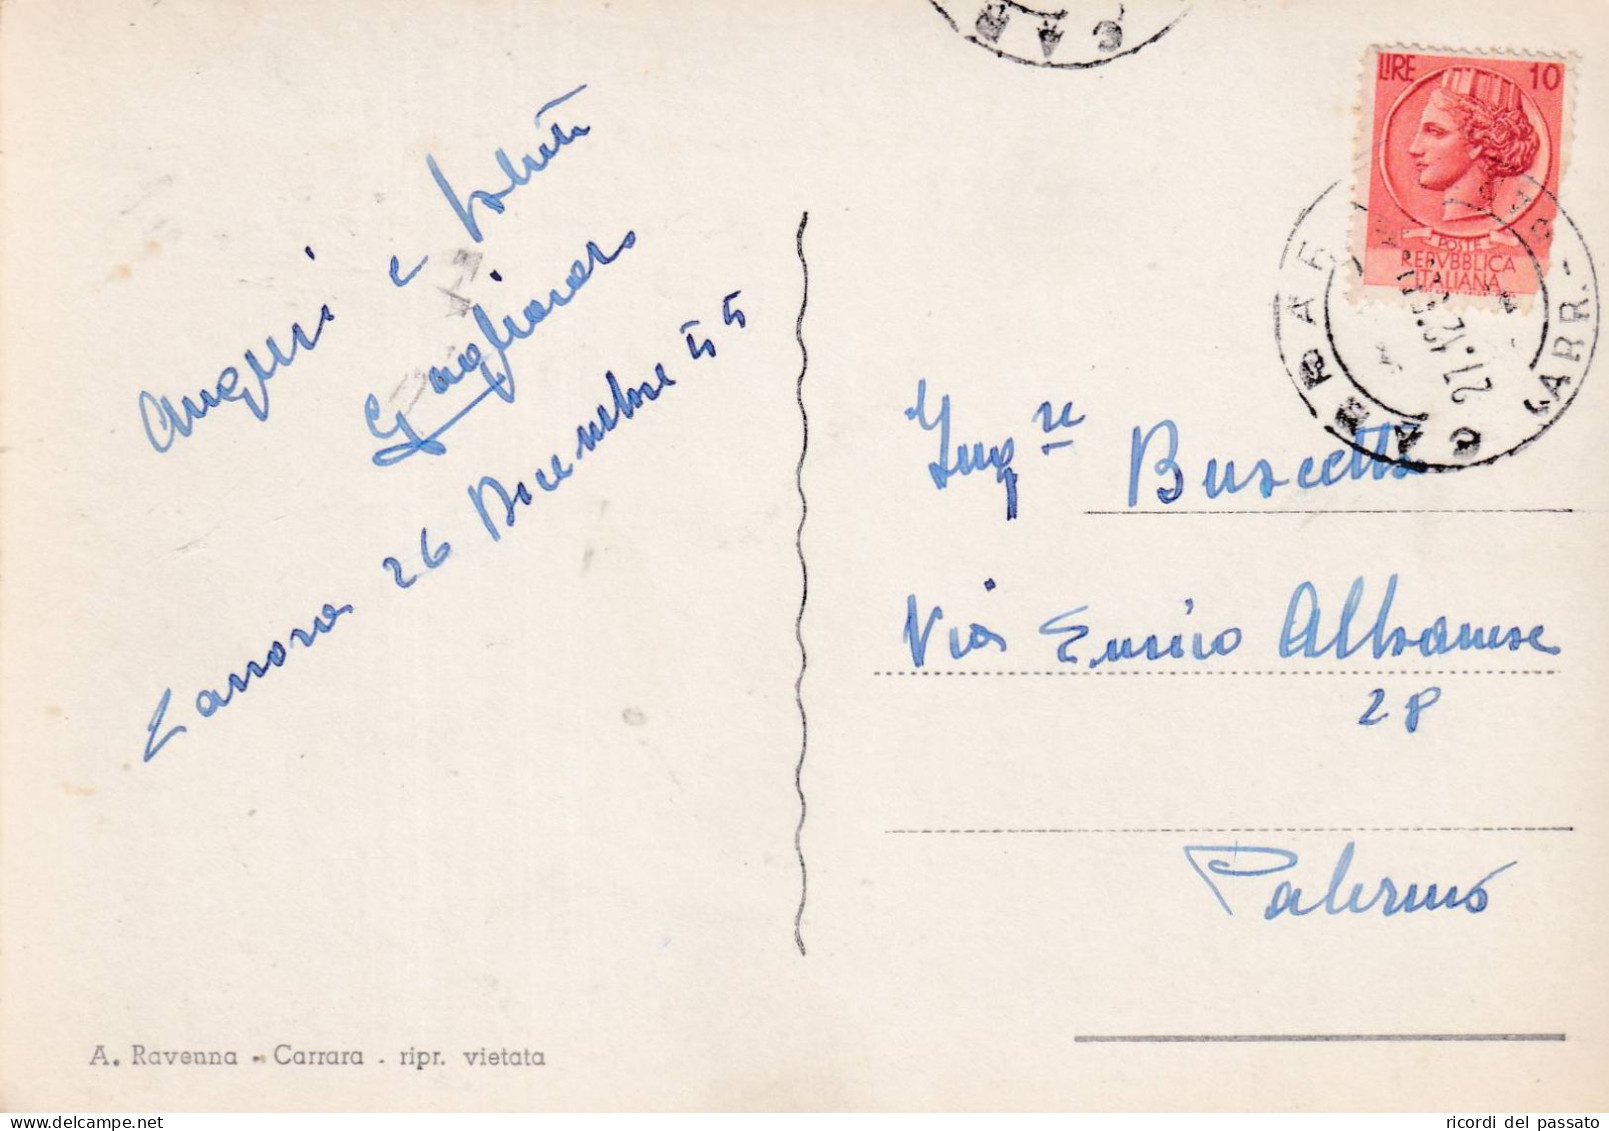 Auguri e saluti
Gagliano
Carrara 26 Dicembre 55
A. Ravenna - Carrara - ripr. vietata
LIRE 10
POSTE
REPVBBLICA
ITALIANA
CARRARA
CARR.
27.12
CAR
Ing re Buscetta
Via Enrico Albanese
28
Palermo
ricordi del passato